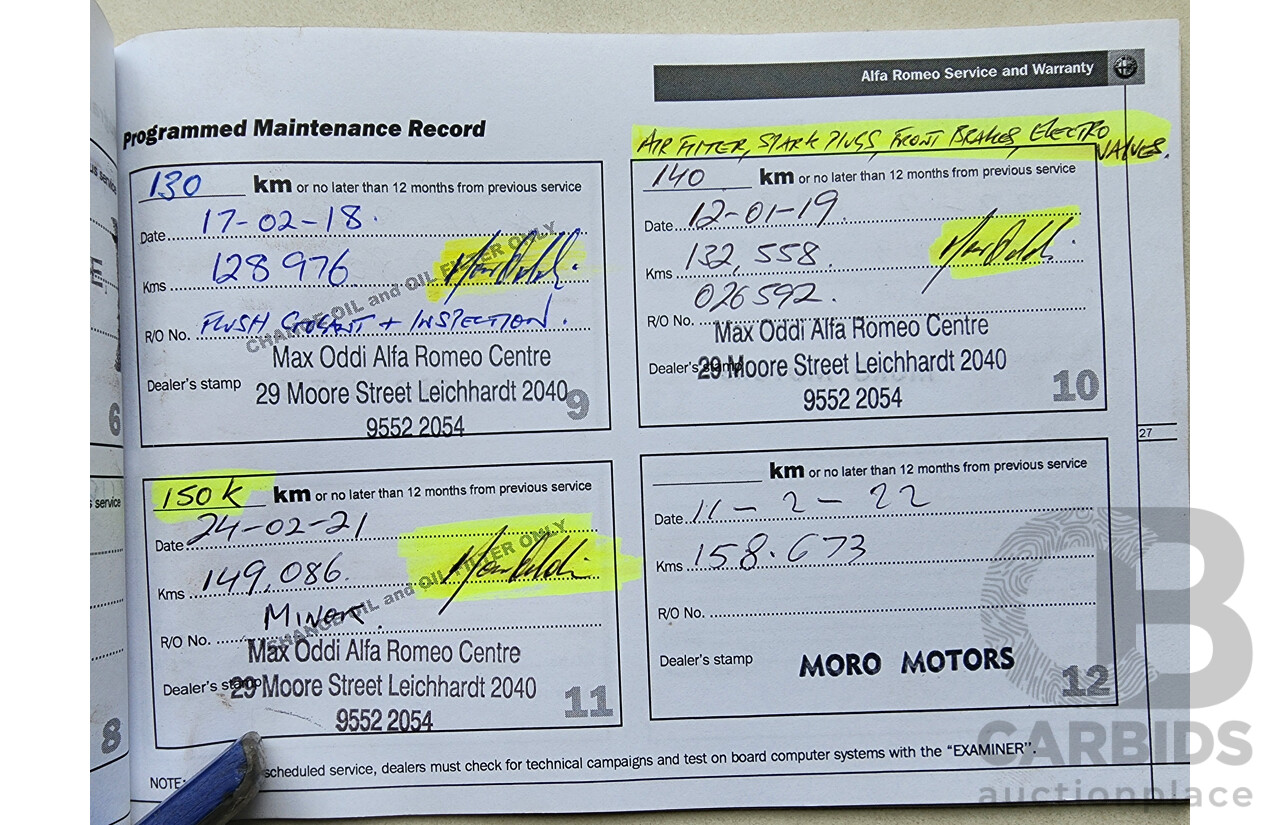 Alfa Romeo Service and Warranty
Programmed Maintenance Record
AIR FILTER, SPARK PLUGS, FRONT BRAKES, ELECTRO
VALVES.
130 km or no later than 12 months from previous service
Date 17-02-18.
Kms 128976
CHANGE OIL and OIL FILTER ONLY
R/O No. FLUSH COOLANT + INSPECTION.
Max Oddi Alfa Romeo Centre
Dealer's stamp
29 Moore Street Leichhardt 2040
9552 2054
9
140 km or no later than 12 months from previous service
Date 12-01-19.
Kms 132,558.
R/O No. 026592.
Max Oddi Alfa Romeo Centre
Dealer's stamp
29 Moore Street Leichhardt 2040
9552 2054
10
27
150K km or no later than 12 months from previous service
Date 24-02-21
Kms 149,086.
CHANGE OIL and OIL FILTER ONLY
R/O No. MINOR.
Max Oddi Alfa Romeo Centre
Dealer's stamp
29 Moore Street Leichhardt 2040
9552 2054
11
km or no later than 12 months from previous service
Date 11-2-22
Kms 158.673
R/O No.
Dealer's stamp
MORO MOTORS
12
NOTE: scheduled service, dealers must check for technical campaigns and test on board computer systems with the "EXAMINER".
6
service
8
CB
CARBIDS
auctionplace